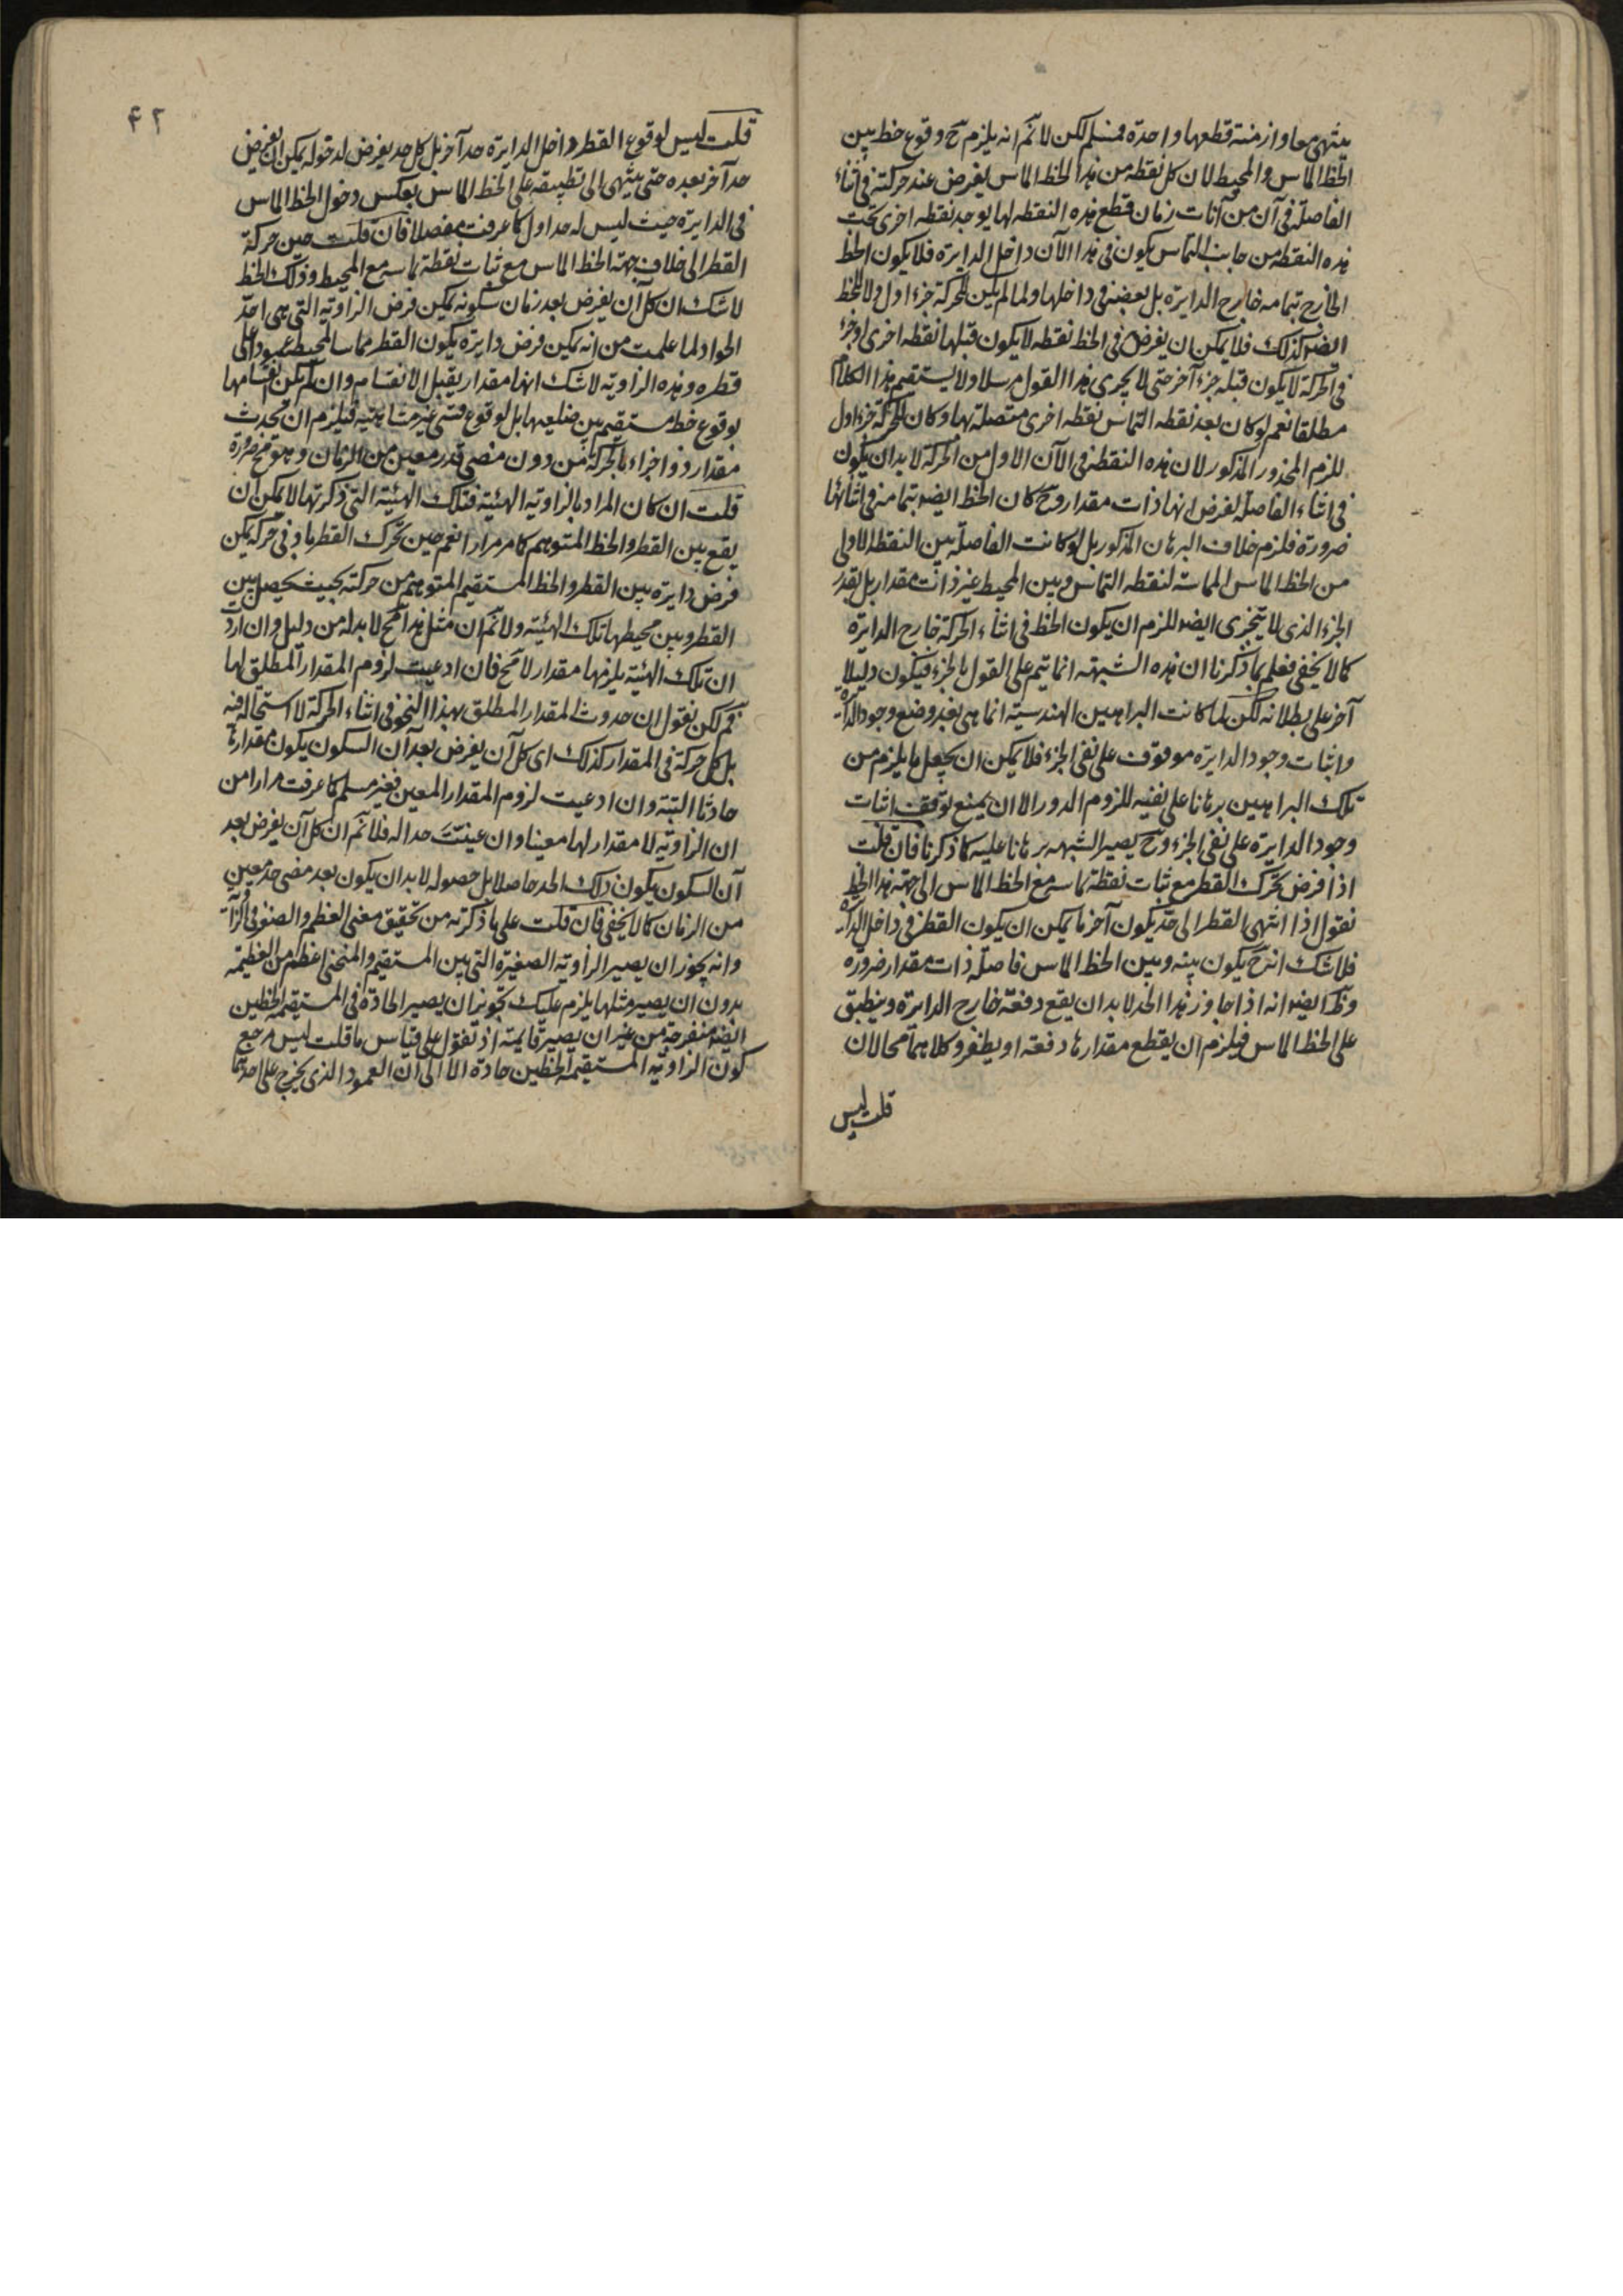 ينتهى معا وازمنة قطعها واحدة فمسلم لكن لا نم انه يلزم ح وقوع خط بين
الخط المماس والمحيط لان كل نقطه من هذا الخط المماس يفرض عند حركته فى اثناء
الفاصلة فى آن من آنات زمان قطع هذه النقطه لها يوجد نقطه اخرى تحت
هذه النقطه من جانب التماس يكون فى هذا الآن داخل الدايرة فلا يكون الخط
الخارج بتمامه خارج الدايرة بل بعضه فى داخلها ولما لم يكن للحركة جزء اول ولا للخط
ايضا كذلك فلا يمكن ان يفرض فى الخط نقطه لا يكون قبلها نقطه اخرى او جزء
فى الحركة لا يكون قبله جزء آخر حتى لا يجرى هذا القول مرسلا ولا يستقيم هذا الكلام
مطلقا نعم لو كان بعد نقطه التماس نقطه اخرى متصلة بها وكان للحركة جزء اول
للزم المحذور المذكور لان هذه النقطه فى الآن الاول من الحركة لا بد ان يكون
فى اثناء الفاصلة لفرض انها ذات مقدار وح كان الخط ايضا بتمامه فى اثنائها
ضرورة فلزم خلاف البرهان المذكور بل لو كانت الفاصلة بين النقطه الاولى
من الخط المماس المماسة لنقطه التماس وبين المحيط غير ذات مقدار بل بقدر
الجزء الذى لا يتجزى ايضا للزم ان يكون الخط فى اثناء الحركة خارج الدايرة
كما لا يخفى فعلم بما ذكرنا ان هذه الشبهه انما يتم على القول بالجزء فيكون دليلا
آخر على بطلانه لكن لما كانت البراهين الهندسية انما هى بعد وضع وجود الدائرة
واثبات وجود الدايرة موقوف على نفى الجزء فلا يمكن ان يجعل ما يلزم من
تلك البراهين برهانا على نفيه للزوم الدور الا ان يمنع توقف اثبات
وجود الدايرة على نفى الجزء وح يصير الشبهه برهانا عليه كما ذكرنا فان قلت
اذا فرض تحرك القطر مع ثبات نقطة تماسه مع الخط المماس الى جهة هذا الخط
نقول اذا انتهى القطر الى حد يكون آخر ما يمكن ان يكون القطر فى داخل الدائرة
فلا شك انه ح يكون بينه وبين الخط المماس فاصلة ذات مقدار ضرورة
وظ ايضا انه اذا جاوز هذا الحد لا بد ان يقع دفعة خارج الدايرة وينطبق
على الخط المماس فيلزم ان يقطع مقدارها دفعه او يطفر وكلاهما محالان
قلت ليس
۴۲
قلت ليس لوقوع القطر داخل الدايرة حد آخر بل كل حد يفرض لدخوله يمكن ان يفرض
حد آخر بعده حتى ينتهى الى تطبيقه على الخط المماس بعكس دخول الخط المماس
فى الدايرة حيث ليس له حد اول كما عرفت مفصلا فان قلت حين حركة
القطر الى خلاف جهة الخط المماس مع ثبات نقطة تماسه مع المحيط وذلك الخط
لا شك ان كل آن يفرض بعد زمان سكونه يمكن فرض الزاوية التى هى احد
الحواد لما علمت من انه يمكن فرض دايرة يكون القطر مماسا لمحيط عمودا على
قطره وهذه الزاوية لا شك انها مقدار يقبل الانقسام وان لم يكن انقسامها
بوقوع خط مستقيم بين ضلعيها بل لوقوع قسى غير متناهية فيلزم ان يحدث
مقدار ذو اجزاء بالحركة من دون مضى قدر معين من الزمان وهو مح ضرورة
قلت ان كان المراد بالزاوية الهيئة فتلك الهيئة التى ذكرتها لا يمكن ان
يقع بين القطر والخط المتوهم كما مر مرارا نعم حين تحرك القطر بادنى حركة يمكن
فرض دايرة بين القطر والخط المستقيم المتوهم من حركته بحيث يحصل بين
القطر وبين محيطها تلك الهيئة ولا نم ان مثل هذا مح لا بد له من دليل وان اردت
ان تلك الهيئة يلزمها مقدار لا مح فان ادعيت لزوم المقدار المطلق لها
فم لكن نقول ان حدوث المقدار المطلق بهذا النحو فى اثناء الحركة لا استحالة فيه
بل كل حركة فى المقدار كذلك اى كل آن يفرض بعد آن السكون يكون مقدارها
حادثا البتة وان ادعيت لزوم المقدار المعين فغير مسلم كما عرفت مرارا من
ان الزاوية لا مقدار لها معينا وان عينت حدا له فلا نم ان كل آن يفرض بعد
آن السكون يكون ذلك الحد حاصلا بل حصوله لا بد ان يكون بعد مضى حد معين
من الزمان كما لا يخفى فان قلت على ما ذكرته من تحقيق معنى العظم والصغر فى الزاوية
وانه يجوز ان يصير الزاوية الصغيرة التى بين المستقيم والمنحنى اعظم من العظيمة
بدون ان يصير مثلها يلزم عليك تجويز ان يصير الحادة فى المستقيمة الخطين
ايضا منفرجة من غير ان يصير قايمة اذ نقول على قياس ما قلت ليس مرجع
كون الزاوية المستقيمة الخطين حادة الا الى ان العمود الذى يخرج على احدهما